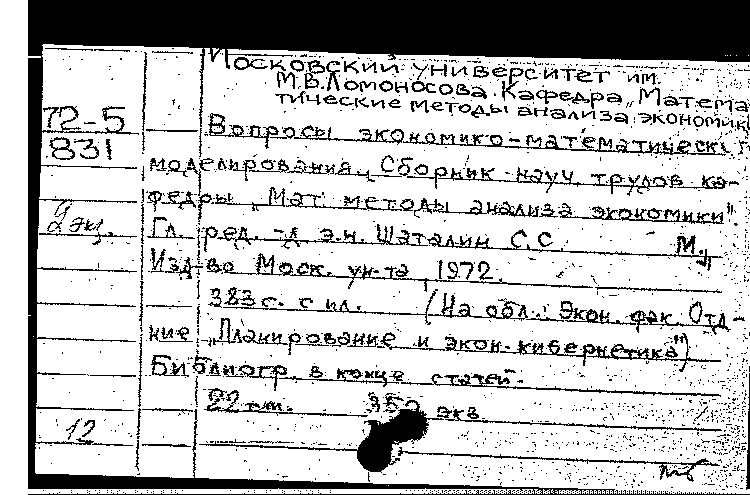 Московский университет им.
М.В.Ломоносова. Кафедра „Матема
тические методы анализа экономик
72-5
831
Вопросы экономико-математическ
моделирования. Сборник науч. трудов ка-
федры „Мат. методы анализа экономики".
2 экз.
Гл. ред. д. э.н. Шаталин С.С. М.,
Изд-во Моск. ун-та, 1972.
383 с. с ил. (На обл.: Экон. фак. Отд-
ние „Планирование и экон. кибернетика")
Библиогр. в конце статей.
22 см. 350 экз.
12